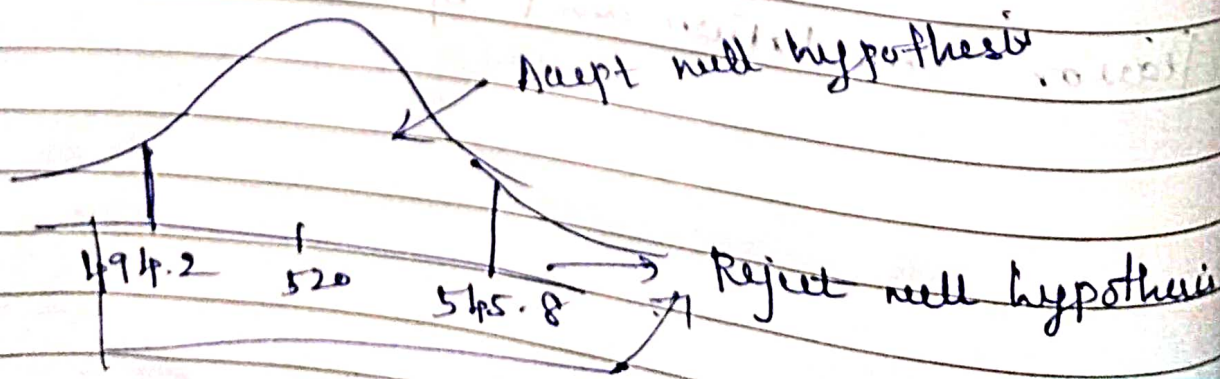 Accept null hypothesis
494.2 520 545.8
Reject null hypothesis